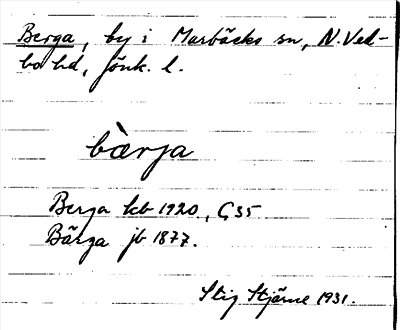 Berga, by i Marbäcks sn, N. Ved-
bo hd, Jönk. l.
bàrja
Berga kb 1920, Ç35
Bärga jb 1877.
Stig Stjärne 1931.